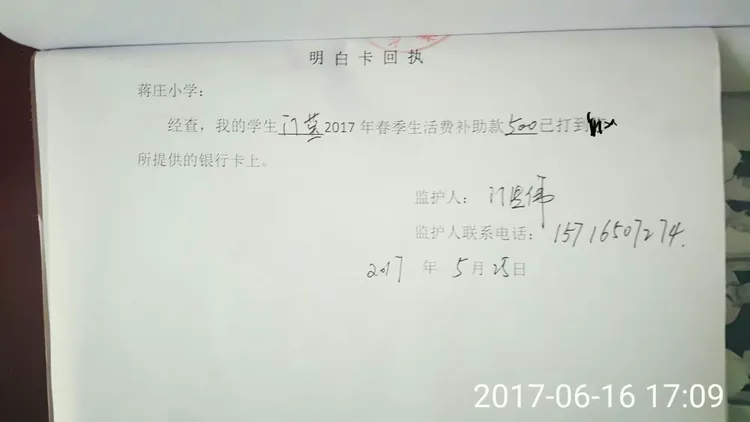 明白卡回执
蒋庄小学：
经查，我的学生门莹2017年春季生活费补助款500已打到
所提供的银行卡上。
监护人：门思伟
监护人联系电话：15716507274.
2017年5月25日
2017-06-16 17:09